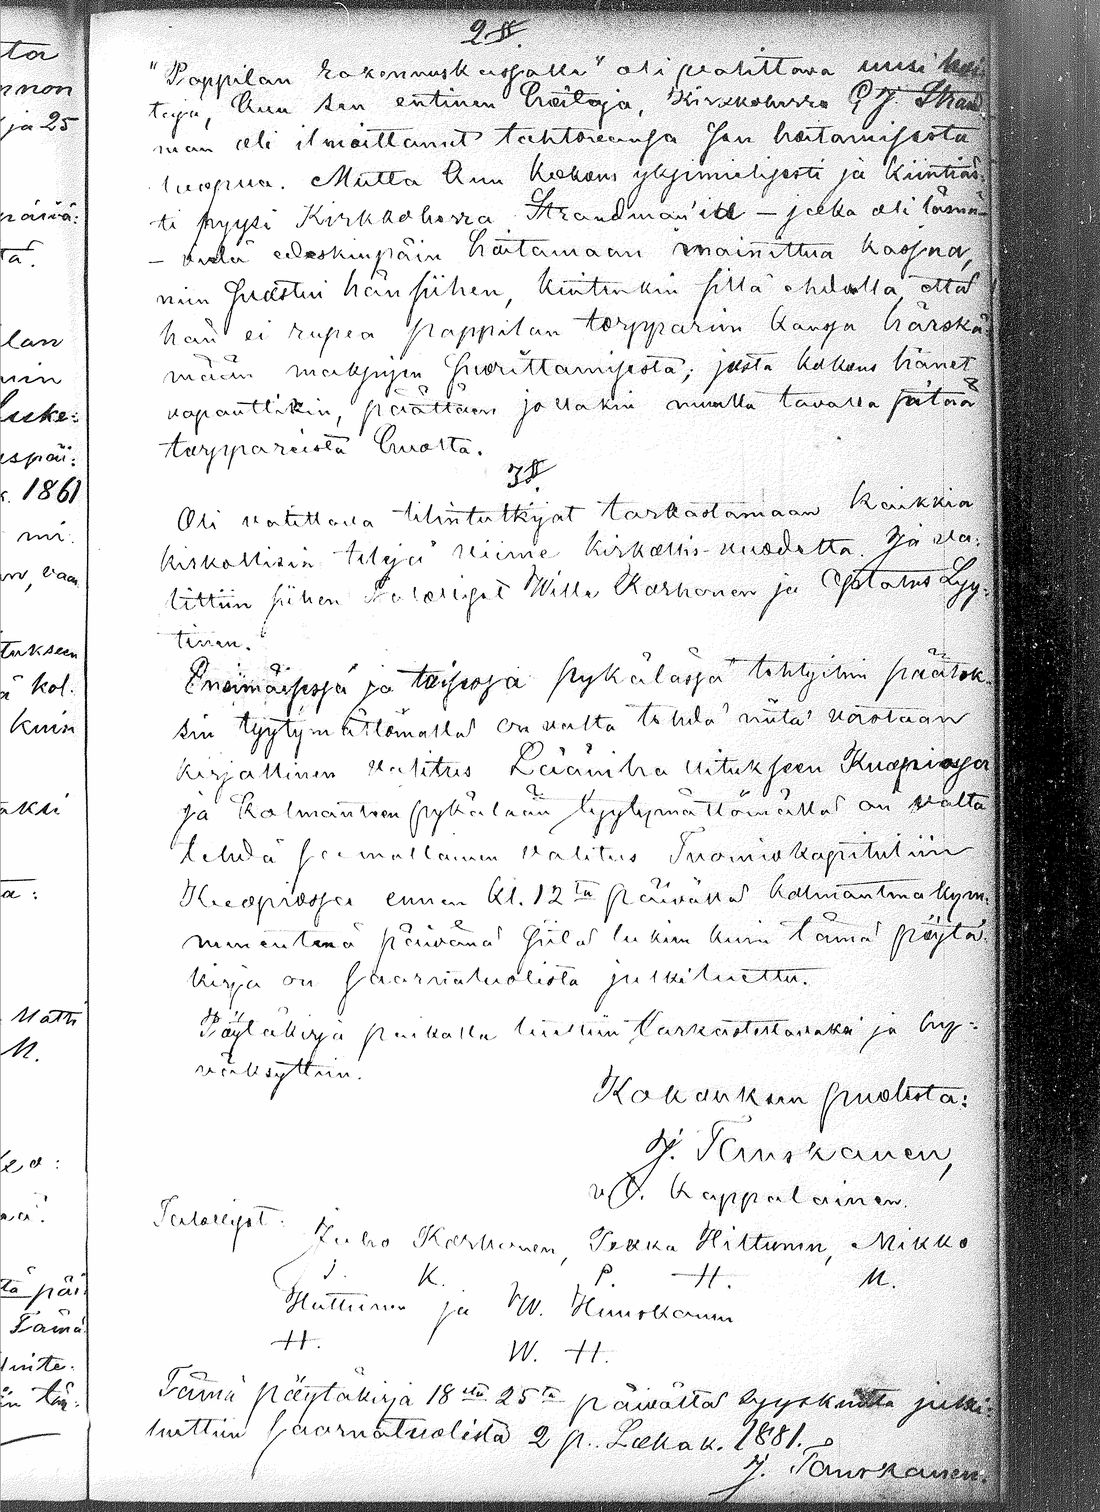 ta
nnon
ja 25
päivä:
tä.
lan
uin
Luke:
espäi:
k. 1861
mi.
tukseen
ä kol.
kuin
aksi
ta:
Matti
M.
tä päi
Tämä
2 §.
"Pappilan Rakennuskassalle" oli valittava uusi hoi-
taja, kun sen entinen hoitaja, Kirkkoherra G. J. Strand
man oli ilmoittanut tahtovansa sen hoitamisesta
luopua. Mutta kun kokous yksimielisesti ja kiinteäs-
ti pyysi Kirkkoherra Strandman'ia – joka oli läsnä
– vielä edeskinpäin hoitamaan mainittua kassaa,
niin suostui hän siihen, kuitenkin sillä ehdolla, että
hän ei rupea pappilan torpparien kanssa
mään maksujen suorittamisesta; josta kokous hänet
vapauttikin, päättäen jollakin muulla tavalla pitää
torppareista huolta.
3 §.
Oli valittava tilintutkijat tarkastamaan kaikkia
kirkollisia tilejä viime kirkollis-vuodelta. Ja va-
littiin siihen Talolliset Wille Karhonen ja Lyy-
tinen.
Ensimäisessä ja toisessa pykälässä tehtyihin päätök-
siin tyytymättömällä on valta tehdä niitä vastaan
kirjallinen valitus Lääninhallitukseen Kuopiossa
ja kolmanteen pykälään tyytymättömällä on valta
tehdä samallainen valitus Tuomiokapituliin
Kuopiossa ennen kl. 12ta päivällä kolmantena kym-
menentenä päivänä siitä lukien kuin tämä pöytä-
kirja on saarnatuolista julkiluettu.
Pöytäkirja paikalla luettiin tarkastettavaksi ja hy-
väksyttiin.
Kokouksen puolesta:
J. Tanskanen,
v. C. Kappalainen.
Talolliset: Juho Karhonen, Pekka Hittunen, Mikko
J. K. P. H. M.
Huttunen ja W. Huuskonen
H. W. H.
Tämä pöytäkirja 18sta 25ta päivältä syyskuuta julki-
luettiin saarnatuolista 2 p. Lokak. 1881.
J. Tanskanen.